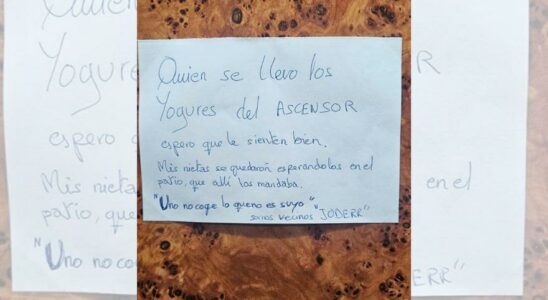 Quien se llevo los
Yogures del ASCENSOR
espero que le sienten bien.
Mis nietas se quedarón esperandolos en el
patio, que alli los mandaba.
"Uno no coge lo que no es suyo"
vecinos "JODERR"